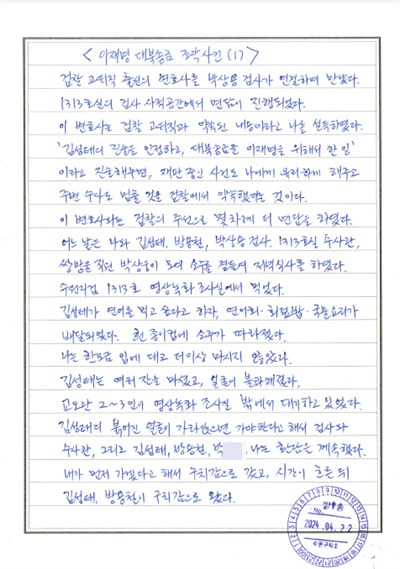 < 이재명 대북송금 조작사건 (1) >
검찰 고위직 출신의 변호사를 박상용 검사가 연결하여 만났다.
1313호실의 검사 사적공간에서 면담이 진행되었다.
이 변호사는 검찰 고위직과 약속된 내용이라고 나를 설득하였다.
'김성태의 진술을 인정하고, 대북송금을 이재명을 위해서 한 일'
이라고 진술해주면, 재판 중인 사건도 나에게 유리하게 해주고
주변 수사도 멈출 것을 검찰에서 약속했다는 것이다.
이 변호사와는 검찰의 주선으로 몇차례 더 면담을 하였다.
어느 날은 나와 김성태, 방용철, 박상용 검사, 1313호실 수사관,
쌍방울 직원 박상웅이 모여 소주를 곁들여 저녁식사를 하였다.
수원지검 1313호 영상녹화 조사실에서 먹었다.
김성태가 연어를 먹고 싶다고 하자, 연어회·회덮밥·국물요리가
배달되었다. 흰 종이컵에 소주가 따라졌다.
나는 한모금 입에 대고 더이상 마시지 않았다.
김성태는 여러 잔을 마셨고, 얼굴이 붉어졌다.
교도관 2~3인이 영상녹화 조사실 밖에서 대기하고 있었다.
김성태의 붉어진 얼굴이 가라앉으면 가야한다고 해서 검사와
수사관, 그리고 김성태, 방용철, 박 , 나는 환담을 계속했다.
내가 먼저 가겠다고 해서 구치감으로 갔고, 시간이 흐른 뒤
김성태, 방용철이 구치감으로 왔다.
발송
No
2024.04.22
수원구치소